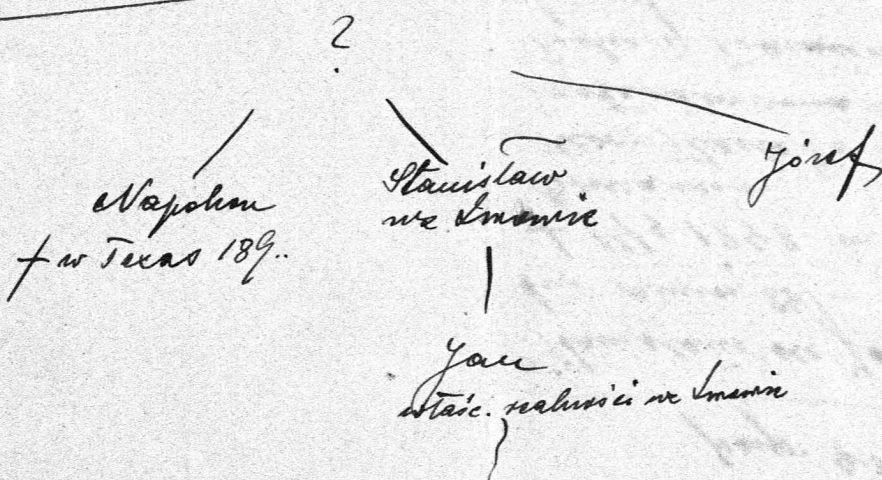 ?
Napoleon
† w Texas 189..
Stanisław
we Lwowie
Józef
Jan
właśc. realności we Lwowie